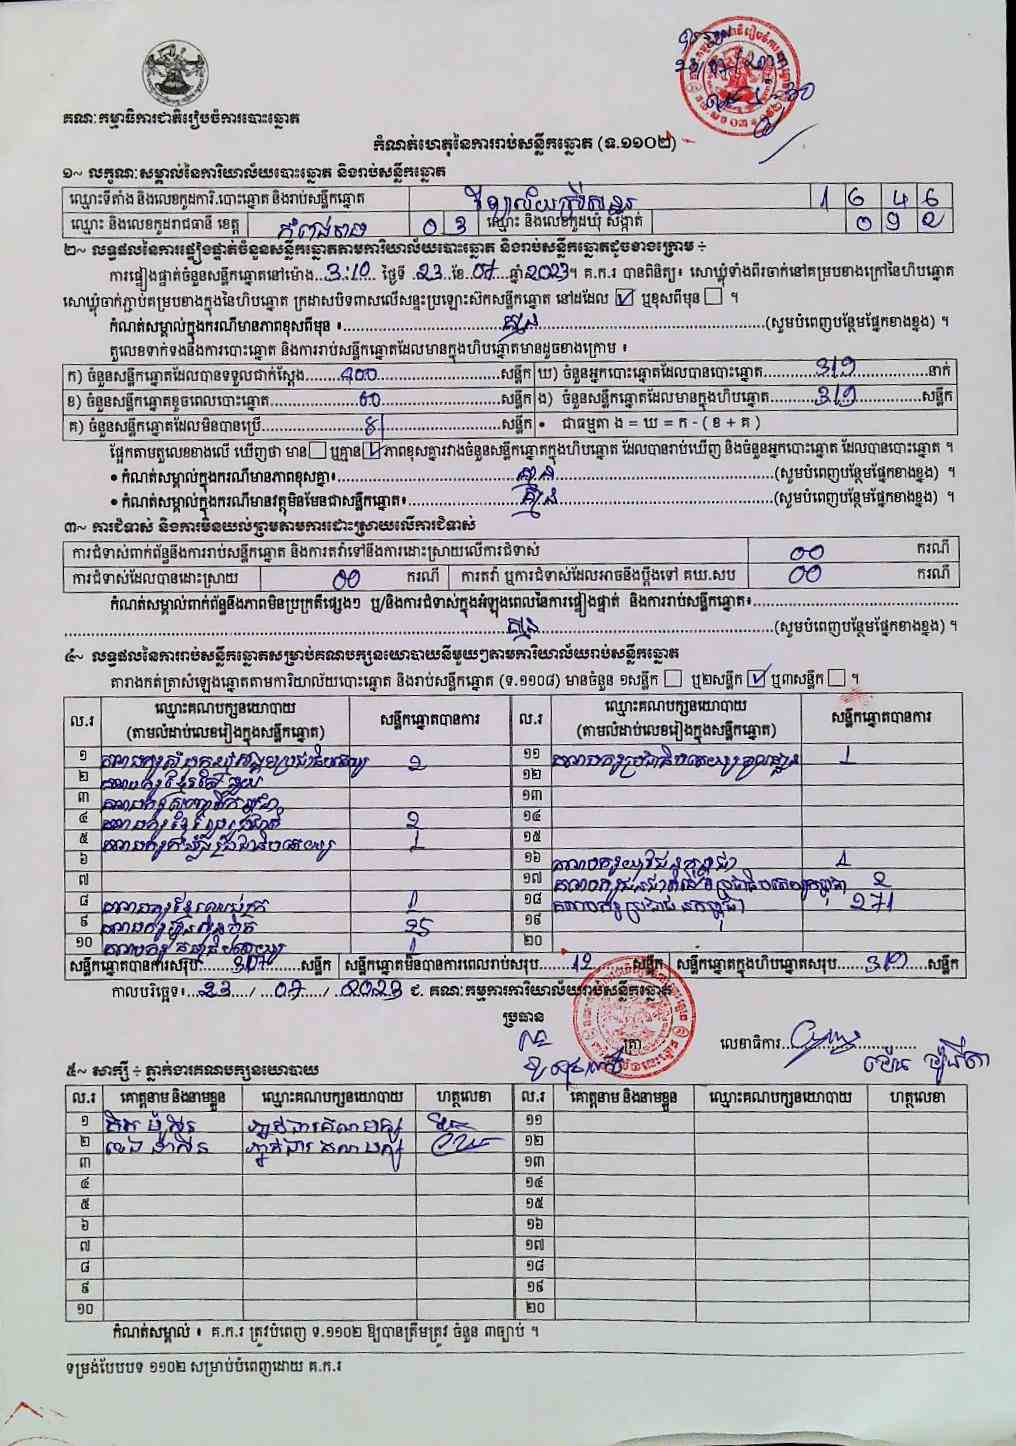 គណៈកម្មាធិការជាតិរៀបចំការបោះឆ្នោត
កំណត់ហេតុនៃការរាប់សន្លឹកឆ្នោត (ទ.១១០២)
១~ លក្ខណៈសម្គាល់នៃការិយាល័យបោះឆ្នោត និងរាប់សន្លឹកឆ្នោត
ឈ្មោះទីតាំង និងលេខកូដការិ.បោះឆ្នោត និងរាប់សន្លឹកឆ្នោត 1 6 4 6
ឈ្មោះ និងលេខកូដរាជធានី ខេត្ត កំពង់ចាម 0 3 ឈ្មោះ និងលេខកូដឃុំ សង្កាត់ 0 9 2
២~ លទ្ធផលនៃការផ្ទៀងផ្ទាត់ចំនួនសន្លឹកឆ្នោតតាមការិយាល័យបោះឆ្នោត និងរាប់សន្លឹកឆ្នោតដូចខាងក្រោម ÷
ការផ្ទៀងផ្ទាត់ចំនួនសន្លឹកឆ្នោតនៅម៉ោង 3:10 ថ្ងៃទី 23 ខែ 07 ឆ្នាំ 2023។ គ.ក.រ បានពិនិត្យ៖ សោឃ្លុំទាំងពីរចាក់នៅគម្របខាងក្រៅនៃហិបឆ្នោត
សោឃ្លុំចាក់ភ្ជាប់គម្របខាងក្នុងនៃហិបឆ្នោត ក្រដាសបិទពាសលើសន្ទះប្រឡោះស៊កសន្លឹកឆ្នោត នៅដដែល ☑ ឬខុសពីមុន ☐ ។
កំណត់សម្គាល់ក្នុងករណីមានភាពខុសពីមុន ៖ គ្មាន (សូមបំពេញបន្ថែមផ្នែកខាងខ្នង) ។
តួលេខទាក់ទងនឹងការបោះឆ្នោត និងការរាប់សន្លឹកឆ្នោតដែលមានក្នុងហិបឆ្នោតមានដូចខាងក្រោម ៖
ក) ចំនួនសន្លឹកឆ្នោតដែលបានទទួលជាក់ស្តែង 400 សន្លឹក ឃ) ចំនួនអ្នកបោះឆ្នោតដែលបានបោះឆ្នោត 319 នាក់
ខ) ចំនួនសន្លឹកឆ្នោតខូចពេលបោះឆ្នោត 00 សន្លឹក ង) ចំនួនសន្លឹកឆ្នោតដែលមានក្នុងហិបឆ្នោត 319 សន្លឹក
គ) ចំនួនសន្លឹកឆ្នោតដែលមិនបានប្រើ 81 សន្លឹក • ជាធម្មតា ង = ឃ = ក - ( ខ + គ )
ផ្អែកតាមតួលេខខាងលើ ឃើញថា មាន ☐ ឬគ្មាន ☑ ភាពខុសគ្នារវាងចំនួនសន្លឹកឆ្នោតក្នុងហិបឆ្នោត ដែលបានរាប់ឃើញ និងចំនួនអ្នកបោះឆ្នោត ដែលបានបោះឆ្នោត ។
• កំណត់សម្គាល់ក្នុងករណីមានភាពខុសគ្នា៖ គ្មាន (សូមបំពេញបន្ថែមផ្នែកខាងខ្នង) ។
• កំណត់សម្គាល់ក្នុងករណីមានវត្ថុមិនមែនជាសន្លឹកឆ្នោត៖ គ្មាន (សូមបំពេញបន្ថែមផ្នែកខាងខ្នង) ។
៣~ ការជំទាស់ និងការមិនយល់ព្រមតាមការដោះស្រាយលើការជំទាស់
ការជំទាស់ពាក់ព័ន្ធនឹងការរាប់សន្លឹកឆ្នោត និងការតវ៉ាទៅនឹងការដោះស្រាយលើការជំទាស់ 00 ករណី
ការជំទាស់ដែលបានដោះស្រាយ 00 ករណី ការតវ៉ា ឬការជំទាស់ដែលអាចនឹងប្តឹងទៅ គឃ.សប 00 ករណី
កំណត់សម្គាល់ពាក់ព័ន្ធនឹងភាពមិនប្រក្រតីផ្សេងៗ ឬ/និងការជំទាស់ក្នុងអំឡុងពេលនៃការផ្ទៀងផ្ទាត់ និងការរាប់សន្លឹកឆ្នោត៖
គ្មាន (សូមបំពេញបន្ថែមផ្នែកខាងខ្នង) ។
៤~ លទ្ធផលនៃការរាប់សន្លឹកឆ្នោតសម្រាប់គណបក្សនយោបាយនីមួយៗតាមការិយាល័យរាប់សន្លឹកឆ្នោត
តារាងកត់ត្រាសំឡេងឆ្នោតតាមការិយាល័យបោះឆ្នោត និងរាប់សន្លឹកឆ្នោត (ទ.១១០៨) មានចំនួន ១សន្លឹក ☐ ឬ២សន្លឹក ☑ ឬ៣សន្លឹក ☐ ។
ល.រ ឈ្មោះគណបក្សនយោបាយ (តាមលំដាប់លេខរៀងក្នុងសន្លឹកឆ្នោត) សន្លឹកឆ្នោតបានការ ល.រ ឈ្មោះគណបក្សនយោបាយ (តាមលំដាប់លេខរៀងក្នុងសន្លឹកឆ្នោត) សន្លឹកឆ្នោតបានការ
១ 2 ១១ 1
២ ១២
៣ ១៣
៤ 2 ១៤
៥ 1 ១៥
៦ ១៦ 1
៧ ១៧ 2
៨ 1 ១៨ គណបក្សប្រជាជនកម្ពុជា 271
៩ 25 ១៩
១០ 1 ២០
សន្លឹកឆ្នោតបានការសរុប 307 សន្លឹក សន្លឹកឆ្នោតមិនបានការពេលរាប់សរុប 12 សន្លឹក សន្លឹកឆ្នោតក្នុងហិបឆ្នោតសរុប 319 សន្លឹក
កាលបរិច្ឆេទ៖ 23 / 07 / 2023 ជ. គណៈកម្មការការិយាល័យរាប់សន្លឹកឆ្នោត
ប្រធាន
ត្រា លេខាធិការ
៥~ សាក្សី ÷ ភ្នាក់ងារគណបក្សនយោបាយ
ល.រ គោត្តនាម និងនាមខ្លួន ឈ្មោះគណបក្សនយោបាយ ហត្ថលេខា ល.រ គោត្តនាម និងនាមខ្លួន ឈ្មោះគណបក្សនយោបាយ ហត្ថលេខា
១ ភ្នាក់ងារគណបក្ស ១១
២ ភ្នាក់ងារគណបក្ស ១២
៣ ១៣
៤ ១៤
៥ ១៥
៦ ១៦
៧ ១៧
៨ ១៨
៩ ១៩
១០ ២០
កំណត់សម្គាល់ ៖ គ.ក.រ ត្រូវបំពេញ ទ.១១០២ ឱ្យបានត្រឹមត្រូវ ចំនួន ៣ច្បាប់ ។
ទម្រង់បែបបទ ១១០២ សម្រាប់បំពេញដោយ គ.ក.រ